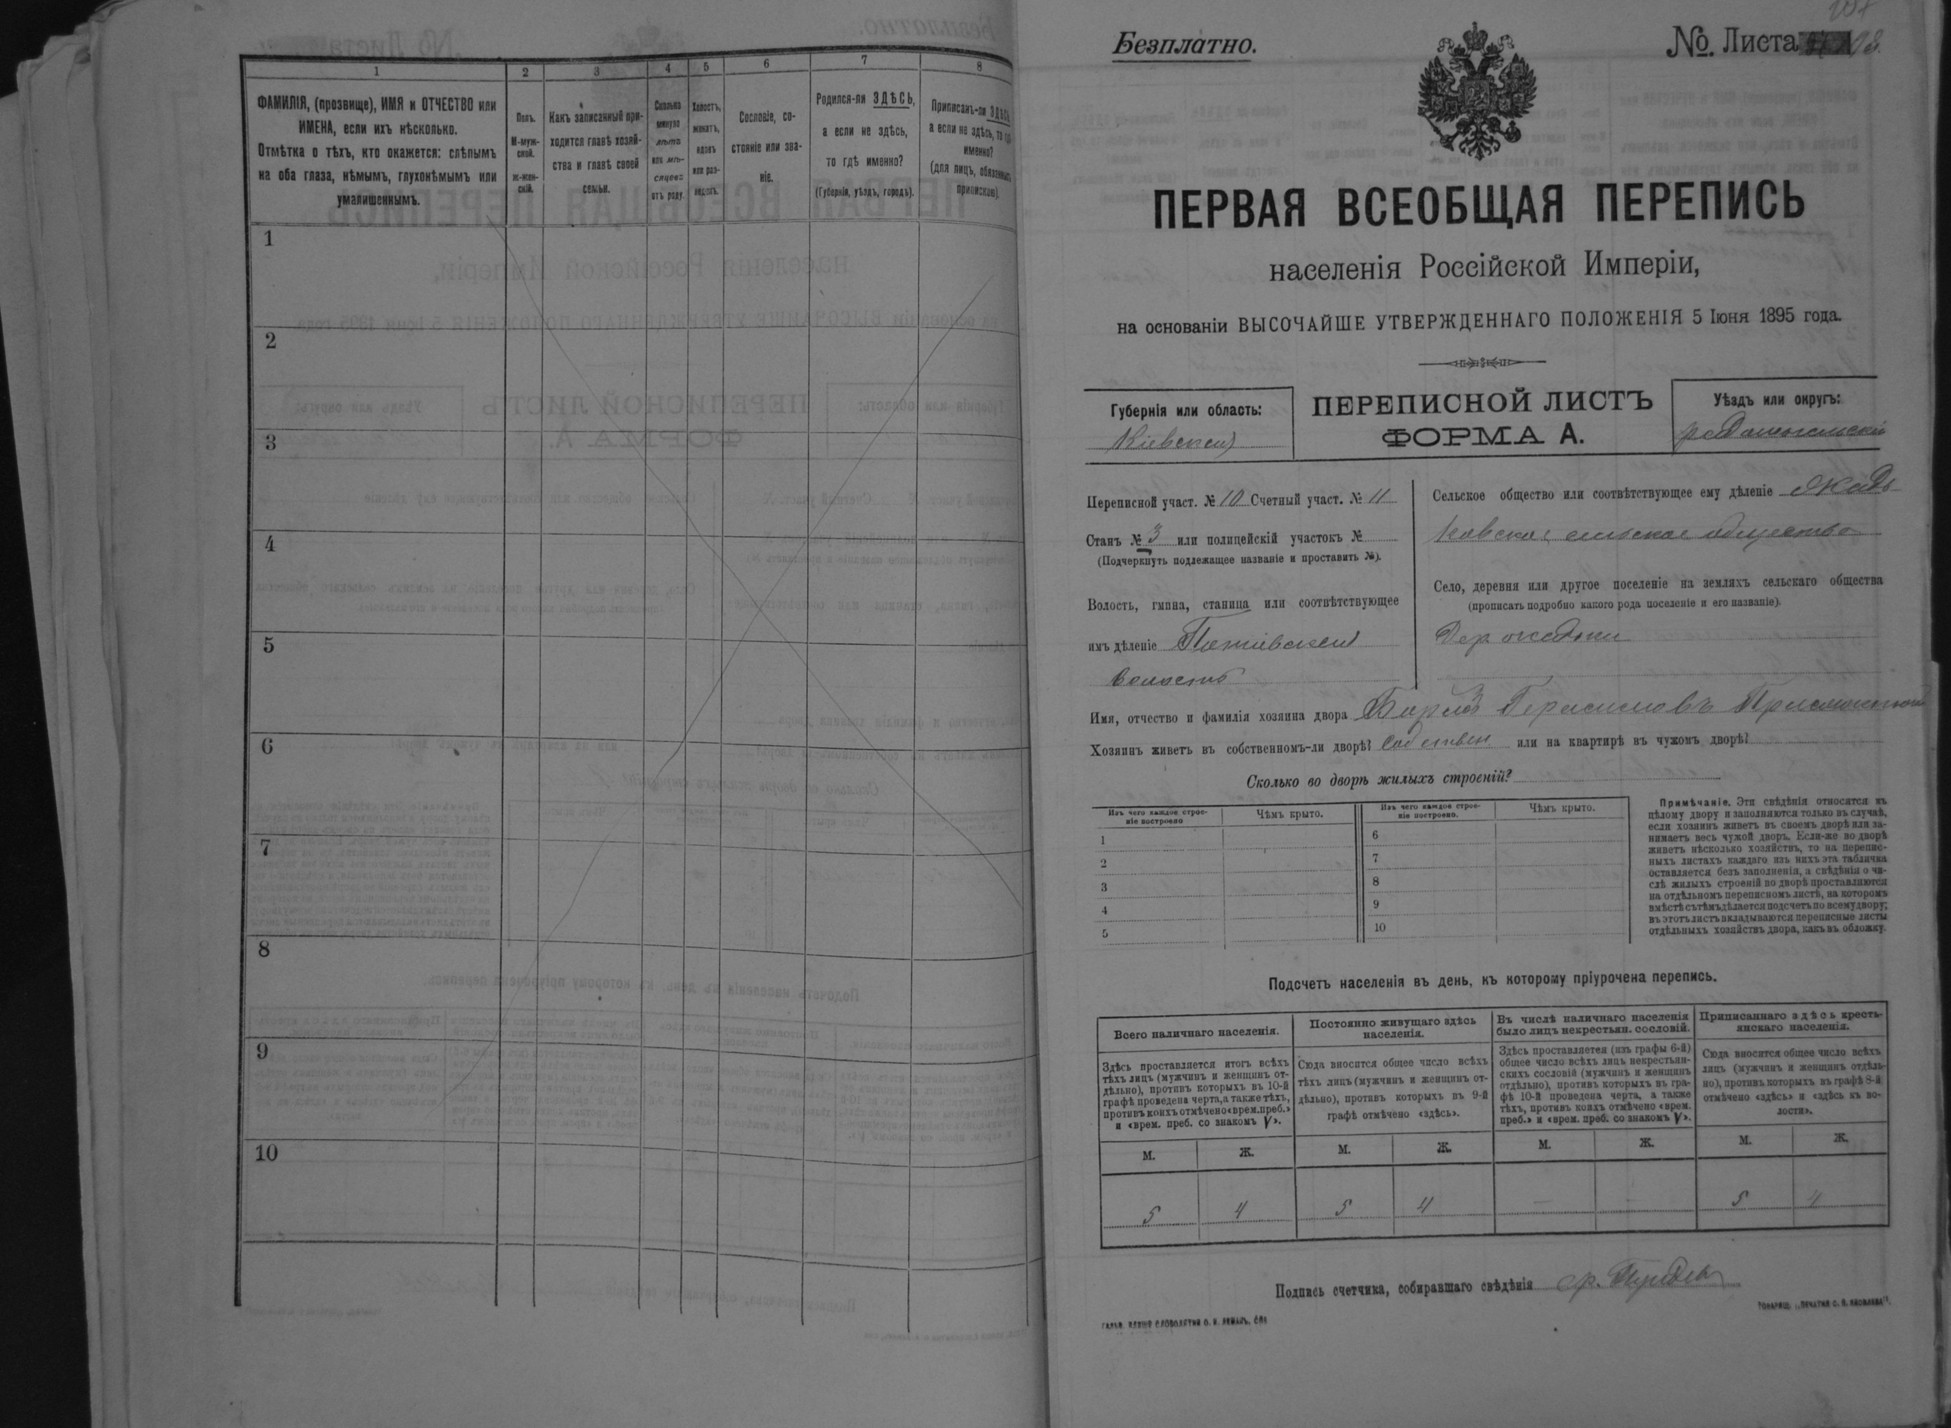 1 2 3 4 5 6 7 8
ФАМИЛІЯ, (прозвище), ИМЯ и ОТЧЕСТВО или
ИМЕНА, если ихъ нѣсколько.
Отмѣтка о тѣхъ, кто окажется: слѣпымъ
на оба глаза, нѣмымъ, глухонѣмымъ или
умалишеннымъ.
Полъ.
М-муж-
ской.
ж-жен-
скій.
Какъ записанный при-
ходится главѣ хозяй-
ства и главѣ своей
семьи.
Сколько
минуло
лѣтъ
или мѣ-
сяцевъ
отъ роду.
Холостъ,
женатъ,
вдовъ
или раз-
веденъ.
Сословіе, со-
стояніе или зва-
ніе.
Родился-ли ЗДѢСЬ,
а если не здѣсь,
то гдѣ именно?
(Губернія, уѣздъ, городъ).
Приписанъ-ли ЗДѢСЬ,
а если не здѣсь, то гдѣ
именно?
(для лицъ, обязанныхъ
припискою).
1
2
3
4
5
6
7
8
9
10
Безплатно.
№. Листа
ПЕРВАЯ ВСЕОБЩАЯ ПЕРЕПИСЬ
населенія Россійской Имперіи,
на основаніи ВЫСОЧАЙШЕ УТВЕРЖДЕННАГО ПОЛОЖЕНІЯ 5 Іюня 1895 года.
Губернія или область:
Кіевская
ПЕРЕПИСНОЙ ЛИСТЪ
ФОРМА А.
Уѣздъ или округъ:
Переписной участ. № 10 Счетный участ. № 11
Станъ № 3 или полицейскій участокъ №
(Подчеркнуть подлежащее названіе и проставить №).
Волость, гмина, станица или соотвѣтствующее
имъ дѣленіе
волость
Сельское общество или соотвѣтствующее ему дѣленіе
сельское общество
Село, деревня или другое поселеніе на земляхъ сельскаго общества
(прописать подробно какого рода поселеніе и его названіе).
Дер
Имя, отчество и фамилія хозяина двора Герасимовъ
Хозяинъ живетъ въ собственномъ-ли дворѣ? Собствен или на квартирѣ въ чужомъ дворѣ?
Сколько во дворѣ жилыхъ строеній?
Изъ чего каждое строе-
ніе построено
Чѣмъ крыто.
Изъ чего каждое строе-
ніе построено.
Чѣмъ крыто.
1 6
2 7
3 8
4 9
5 10
Примѣчаніе. Эти свѣдѣнія относятся къ
цѣлому двору и заполняются только въ случаѣ,
если хозяинъ живетъ въ своемъ дворѣ или за-
нимаетъ весь чужой дворъ. Если-же во дворѣ
живетъ нѣсколько хозяйствъ, то на перепис-
ныхъ листахъ каждаго изъ нихъ эта табличка
оставляется безъ заполненія, а свѣдѣнія о чи-
слѣ жилыхъ строеній во дворѣ проставляются
на отдѣльномъ переписномъ листѣ, на которомъ
вмѣстѣ съ тѣмъ дѣлается подсчетъ по всему двору;
въ этотъ листъ вкладываются переписные листы
отдѣльныхъ хозяйствъ двора, какъ въ обложку.
Подсчетъ населенія въ день, къ которому пріурочена перепись.
Всего наличнаго населенія.
Здѣсь проставляется итогъ всѣхъ
тѣхъ лицъ (мужчинъ и женщинъ от-
дѣльно), противъ которыхъ въ 10-й
графѣ проведена черта, а также тѣхъ,
противъ коихъ отмѣчено «врем. преб.»
и «врем. преб. со знакомъ V».
Постоянно живущаго здѣсь
населенія.
Сюда вносится общее число всѣхъ
тѣхъ лицъ (мужчинъ и женщинъ от-
дѣльно), противъ которыхъ въ 9-й
графѣ отмѣчено «здѣсь».
Въ числѣ наличнаго населенія
было лицъ некрестьян. сословій.
Здѣсь проставляется (изъ графы 6-й)
общее число всѣхъ лицъ некрестьян-
скихъ сословій (мужчинъ и женщинъ
отдѣльно), противъ которыхъ въ гра-
фѣ 10-й проведена черта, а также
тѣхъ, противъ коихъ отмѣчено «врем.
преб.» и «врем. преб. со знакомъ V».
Приписаннаго здѣсь кресть-
янскаго населенія.
Сюда вносится общее число всѣхъ
лицъ (мужчинъ и женщинъ отдѣль-
но), противъ которыхъ въ графѣ 8-й
отмѣчено «здѣсь» и «здѣсь къ во-
лости».
М. Ж. М. Ж. М. Ж. М. Ж.
5 4 5 4 — — 5 4
Подпись счетчика, собиравшаго свѣдѣнія